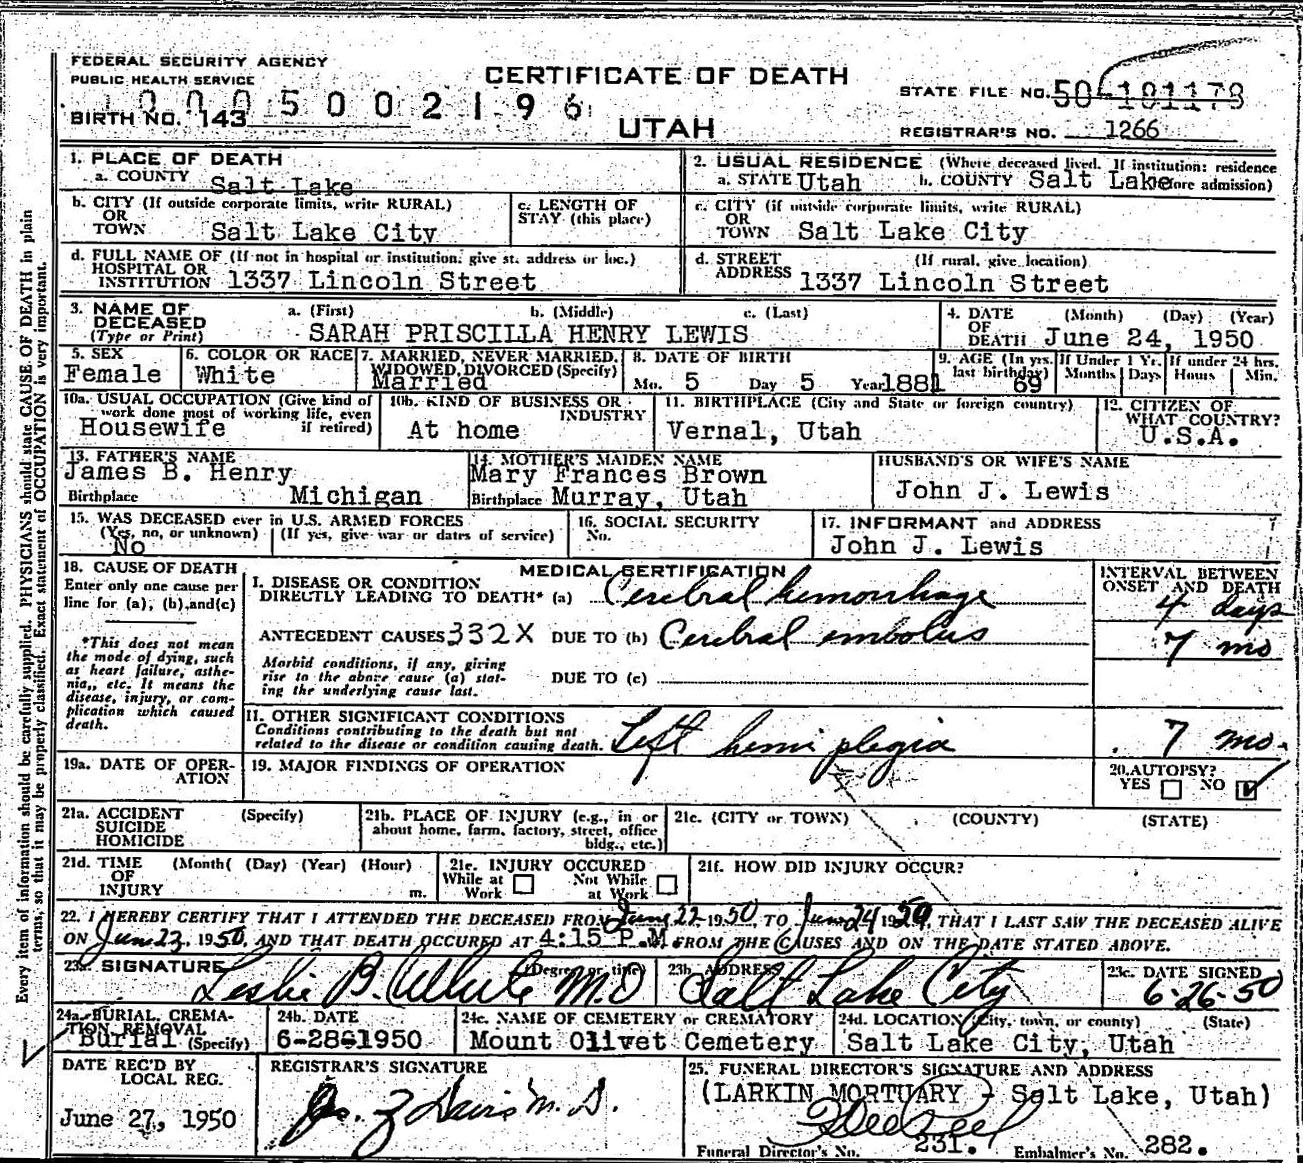 FEDERAL SECURITY AGENCY
PUBLIC HEALTH SERVICE
CERTIFICATE OF DEATH
STATE FILE NO. 50-181178
10005002196
BIRTH NO. 143
UTAH
REGISTRAR'S NO. 1266
1. PLACE OF DEATH
a. COUNTY Salt Lake
2. USUAL RESIDENCE (Where deceased lived. If institution: residence before admission)
a. STATE Utah b. COUNTY Salt Lake
b. CITY (If outside corporate limits, write RURAL)
OR
TOWN Salt Lake City
c. LENGTH OF
STAY (this place)
c. CITY (if outside corporate limits, write RURAL)
OR
TOWN Salt Lake City
d. FULL NAME OF (If not in hospital or institution, give st. address or loc.)
HOSPITAL OR
INSTITUTION 1337 Lincoln Street
d. STREET (If rural, give location)
ADDRESS 1337 Lincoln Street
3. NAME OF DECEASED
(Type or Print)
a. (First) b. (Middle) c. (Last)
SARAH PRISCILLA HENRY LEWIS
4. DATE (Month) (Day) (Year)
OF
DEATH June 24, 1950
5. SEX
Female
6. COLOR OR RACE
White
7. MARRIED, NEVER MARRIED,
WIDOWED, DIVORCED (Specify)
Married
8. DATE OF BIRTH
Mo. 5 Day 5 Year 1881
9. AGE (In yrs. last birthday) 69
If Under 1 Yr.
Months Days
If under 24 hrs.
Hours Min.
10a. USUAL OCCUPATION (Give kind of
work done most of working life, even
if retired)
Housewife
10b. KIND OF BUSINESS OR
INDUSTRY
At home
11. BIRTHPLACE (City and State or foreign country)
Vernal, Utah
12. CITIZEN OF
WHAT COUNTRY?
U.S.A.
13. FATHER'S NAME
James B. Henry
Birthplace Michigan
14. MOTHER'S MAIDEN NAME
Mary Frances Brown
Birthplace Murray, Utah
HUSBAND'S OR WIFE'S NAME
John J. Lewis
15. WAS DECEASED ever in U.S. ARMED FORCES
(Yes, no, or unknown) (If yes, give war or dates of service)
No
16. SOCIAL SECURITY
No.
17. INFORMANT and ADDRESS
John J. Lewis
18. CAUSE OF DEATH
Enter only one cause per
line for (a), (b), and (c)
*This does not mean
the mode of dying, such
as heart failure, asthe-
nia, etc. It means the
disease, injury, or com-
plication which caused
death.
MEDICAL CERTIFICATION
INTERVAL BETWEEN
ONSET AND DEATH
I. DISEASE OR CONDITION
DIRECTLY LEADING TO DEATH* (a) Cerebral hemorrhage 4 days
ANTECEDENT CAUSES 332X DUE TO (b) Cerebral embolus 7 mo
Morbid conditions, if any, giving
rise to the above cause (a) stat-
ing the underlying cause last.
DUE TO (c)
II. OTHER SIGNIFICANT CONDITIONS
Conditions contributing to the death but not
related to the disease or condition causing death. Left hemiplegia 7 mo.
19a. DATE OF OPER-
ATION
19. MAJOR FINDINGS OF OPERATION
20. AUTOPSY?
YES NO
21a. ACCIDENT (Specify)
SUICIDE
HOMICIDE
21b. PLACE OF INJURY (e.g., in or
about home, farm, factory, street, office
bldg., etc.)
21c. (CITY or TOWN) (COUNTY) (STATE)
21d. TIME (Month( (Day) (Year) (Hour)
OF
INJURY m.
21e. INJURY OCCURED
While at Work
Not While at Work
21f. HOW DID INJURY OCCUR?
22. I HEREBY CERTIFY THAT I ATTENDED THE DECEASED FROM June 22 1950, TO June 24 1950, THAT I LAST SAW THE DECEASED ALIVE
ON June 23, 1950, AND THAT DEATH OCCURED AT 4:15 P.M. FROM THE CAUSES AND ON THE DATE STATED ABOVE.
23a. SIGNATURE (Degree or title)
Leslie B. White M.D
23b. ADDRESS
Salt Lake City
23c. DATE SIGNED
6-26-50
24a. BURIAL, CREMA-
TION REMOVAL
Burial (Specify)
24b. DATE
6-28-1950
24c. NAME OF CEMETERY or CREMATORY
Mount Olivet Cemetery
24d. LOCATION (City, town, or county) (State)
Salt Lake City, Utah
DATE REC'D BY
LOCAL REG.
June 27, 1950
REGISTRAR'S SIGNATURE
Davis M.D.
25. FUNERAL DIRECTOR'S SIGNATURE AND ADDRESS
(LARKIN MORTUARY - Salt Lake, Utah)
Funeral Director's No. 231. Embalmer's No. 282.
Every item of information should be carefully supplied. PHYSICIANS should state CAUSE OF DEATH in plain
terms, so that it may be properly classified. Exact statement of OCCUPATION is very important.